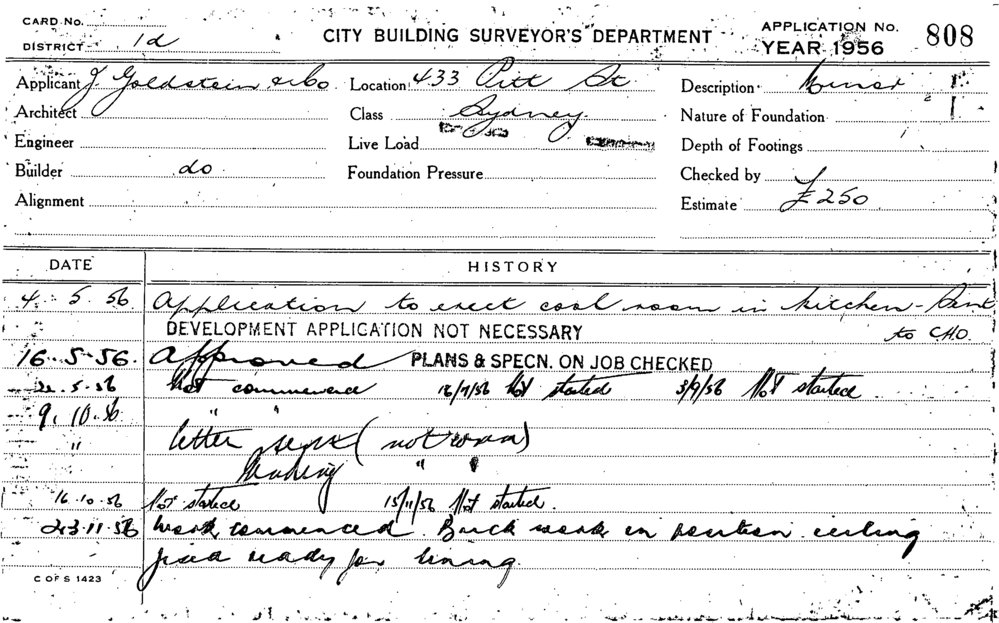 CARD No.
DISTRICT 1d
CITY BUILDING SURVEYOR'S DEPARTMENT
APPLICATION No. 808
YEAR 1956
Applicant J Goldstein & Co Location 433 Pitt St Description Minor
Architect Class Sydney Nature of Foundation
Engineer Live Load Depth of Footings
Builder do Foundation Pressure Checked by
Alignment Estimate £250
DATE HISTORY
4. 5. 56 Application to erect cool room in kitchen - Sent
DEVELOPMENT APPLICATION NOT NECESSARY to C.H.O.
16. 5. 56. Approved PLANS & SPECN. ON JOB CHECKED
5. 56 Not commenced 16/7/56 Not started 3/9/56 Not started
9. 10. 56 " "
" letter sent (not
" "
16. 10. 56 Not started 15/11/56 Not started.
23. 11. 56 Work commenced. Brick work in position ceiling
fixed ready for lining.
C OF S 1423